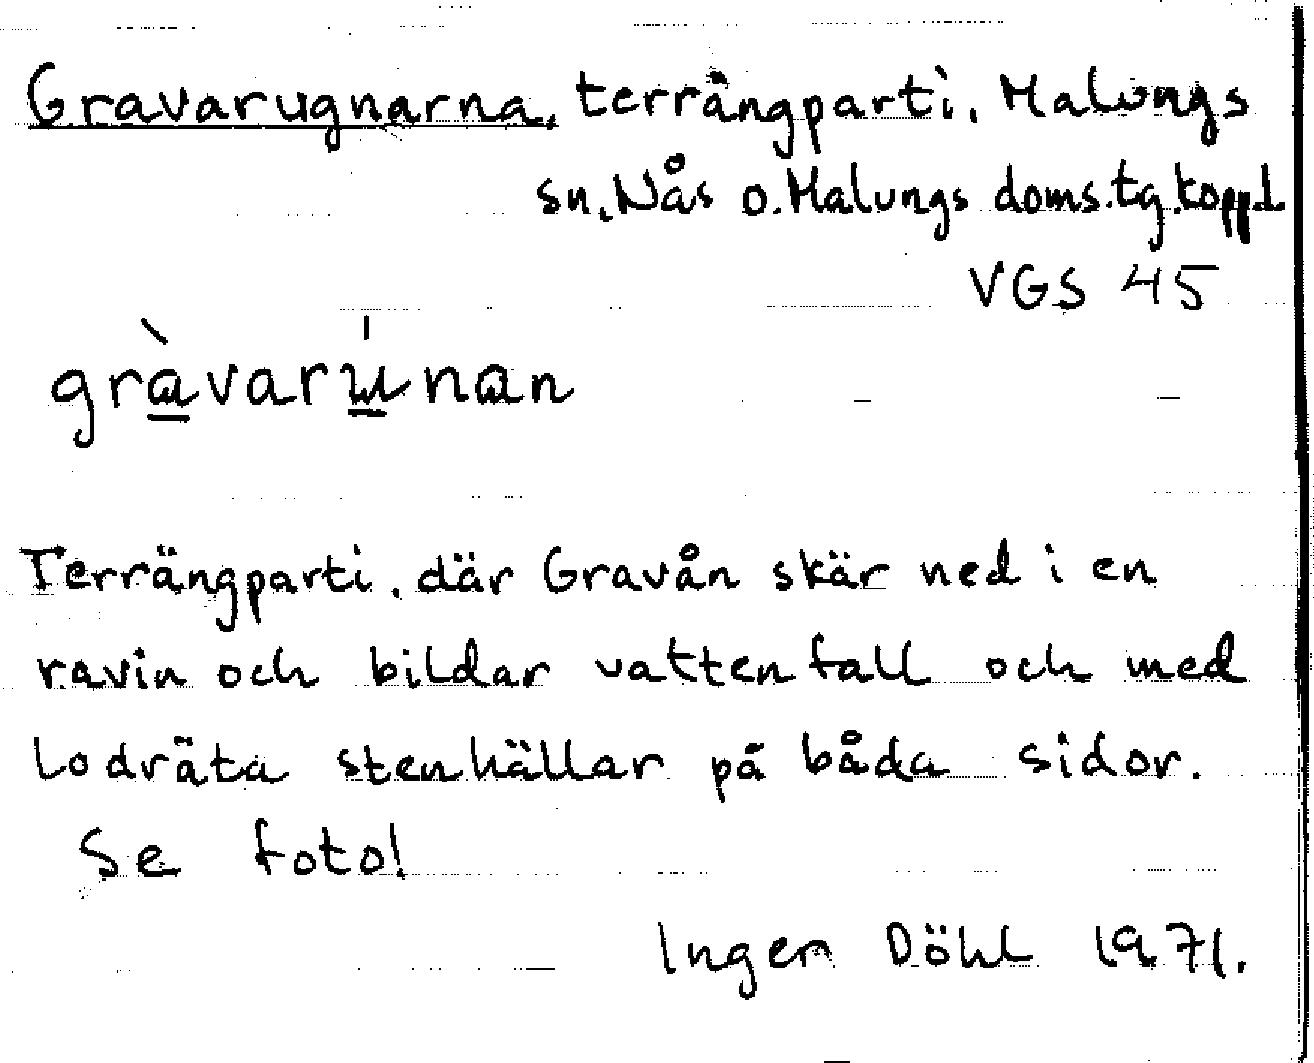 Gravarugnarna, terrängparti, Malungs
sn, Nås o. Malungs doms.tg.koppl
VGS 45
gràvarúnan
Terrängparti, där Gravån skär ned i en
ravin och bildar vattenfall och med
lodräta stenhällar på båda sidor.
Se foto!
Inger Döhl 1971.